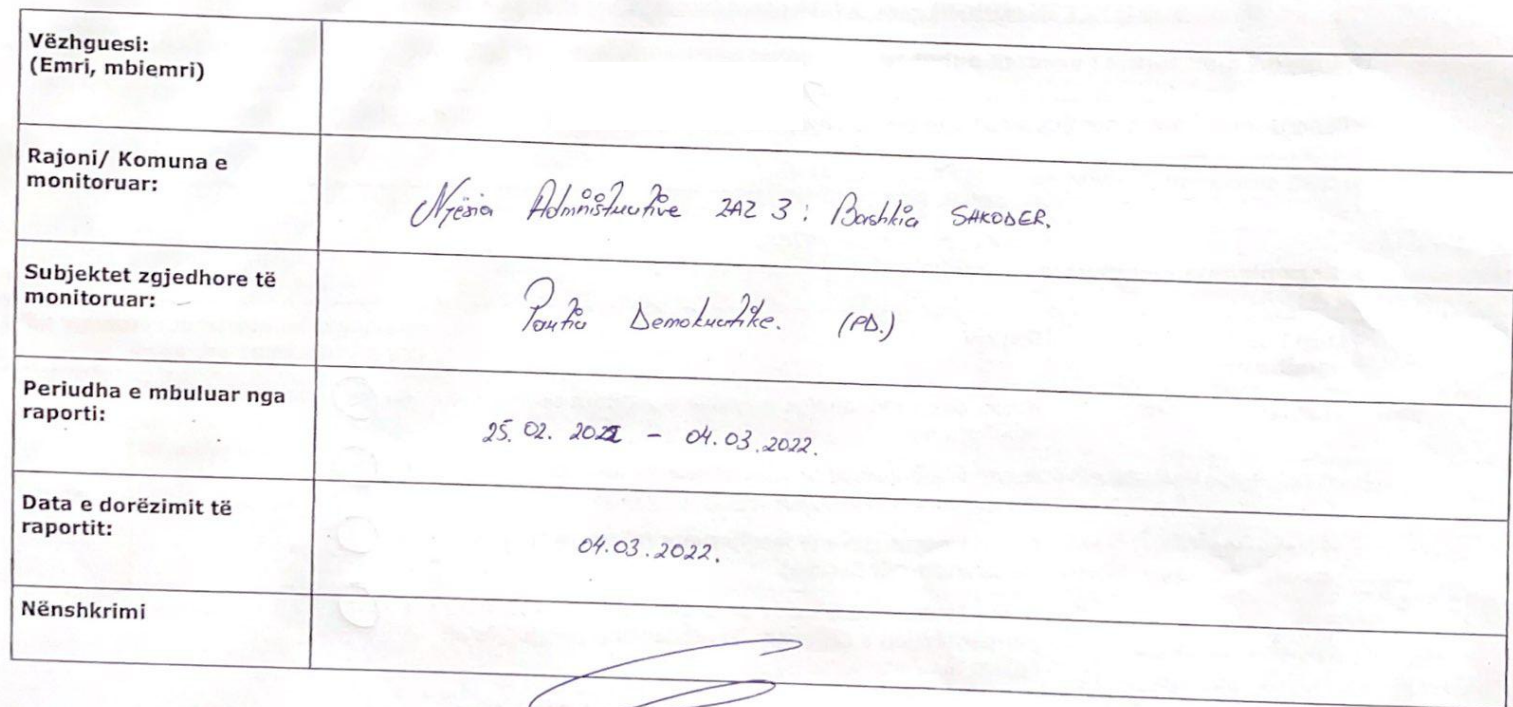 Vëzhguesi:
(Emri, mbiemri)
Rajoni/ Komuna e
monitoruar:
Njësia Administrative ZAZ 3: Bashkia SHKODER.
Subjektet zgjedhore të
monitoruar:
Partia Demokratike. (PD.)
Periudha e mbuluar nga
raporti:
25. 02. 2022 - 04.03.2022.
Data e dorëzimit të
raportit:
04.03.2022.
Nënshkrimi